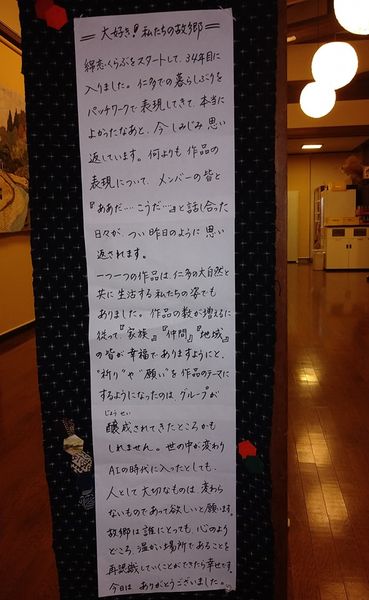 ＝大好き！私たちの故郷＝
綿恋くらぶをスタートして、34年目に
入りました。仁多での暮らしぶりを
パッチワークで表現してきて、本当に
よかったなあと、今しみじみ思い
返しています。何よりも作品の
表現について、メンバーの皆と
『ああだ…こうだ…』と話し合った
日々が、つい昨日のように思い
返されます。
一つ一つの作品は、仁多の大自然と
共に生活する私たちの姿でも
ありました。作品の数が増えるに
従って、『家族』『仲間』『地域』
の皆が幸福でありますようにと、
"祈り"や"願い"を作品のテーマに
するようになったのは、グループが
じょうせい
醸成されてきたところかも
しれません。世の中が変わり
AIの時代に入ったとしても、
人として大切なものは、変わら
ないものであって欲しいと願います。
故郷は誰にとっても、心のより
どころ、温かい場所であることを
再認識していくことができたら幸せです。
今日はありがとうございました。